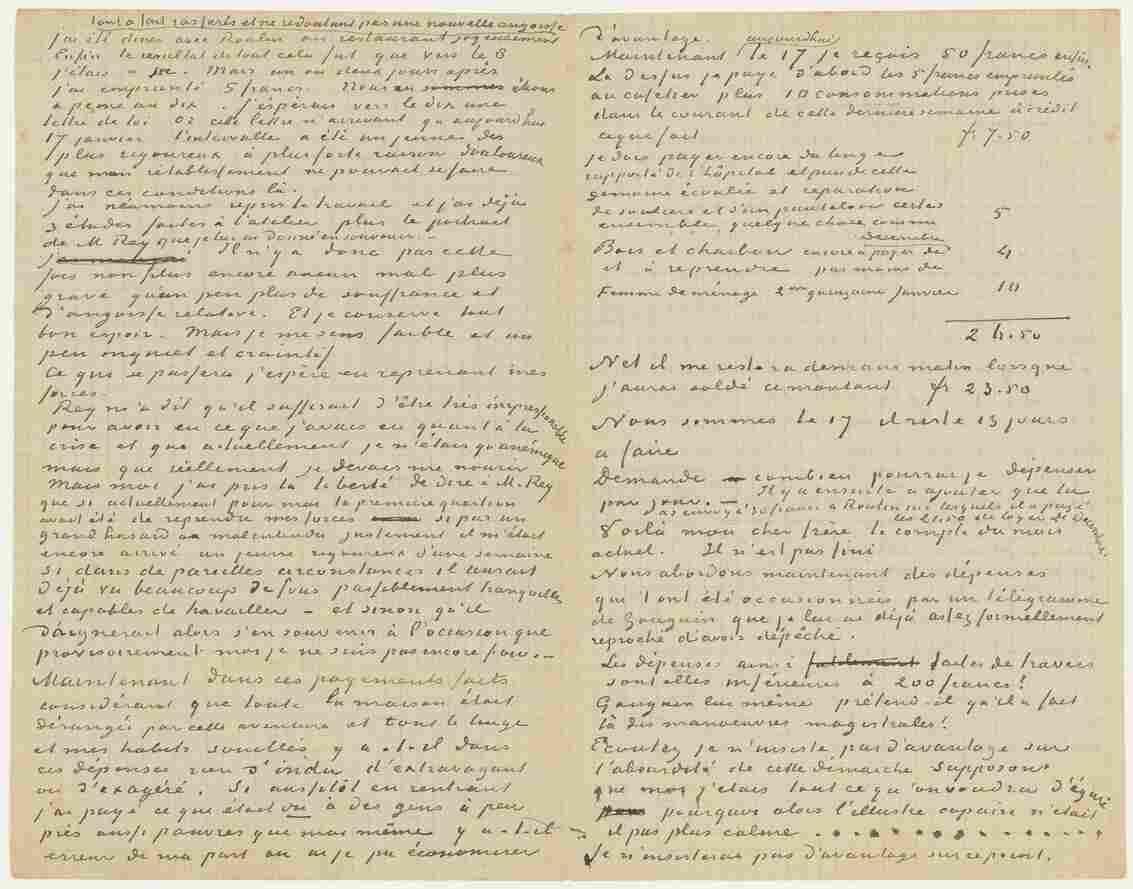 tout à fait rassérés et ne redoutant pas une nouvelle angoisse
j'ai été diner avec Roulin au restaurant joyeusement
Enfin le resultat de tout cela fut que vers le 8
j'étais à sec. Mais un ou deux jours après
j'ai emprunté 5 francs. Nous en étions
à peine au dix. J'espérais vers le dix une
lettre de toi or cette lettre n'arrivant qu'aujourd'hui
17 janvier l'intervalle a été un jeune des
plus rigoureux à plus forte raison douloureux
que mon rétablissement ne pouvait se faire
dans ces conditions là.
J'ai néanmoins repris le travail et j'ai déjà
3 études faites à l'atelier plus le portrait
de M. Rey que je lui ai donné en souvenir.
Il n'y a donc pas cette
fois non plus encore aucun mal plus
grave qu'un peu plus de souffrance et
d'angoisse relative. Et je conserve tout
bon espoir. Mais je me sens faible et un
peu inquiet et craintif
Ce qui se passera j'espère en reprenant mes
forces.
Rey m'a dit qu'il suffisait d'être très impressionable
pour avoir eu ce que j'avais eu quant à la
crise et que actuellement je n'étais qu'anémique
mais que réellement je devais me nourir
Mais moi j'ai pris la liberté de dire à M. Rey
que si actuellement pour moi la première question
avait été de reprendre mes forces si par un
grand hasard ou malentendu justement il m'était
encore arrivé un jeune rigoureux d'une semaine
si dans de pareilles circonstances il aurait
déjà vu beaucoup de fous passablement tranquilles
et capables de travailler – et sinon qu'il
daignerait alors s'en souvenir à l'occasion que
provisoirement moi je ne suis pas encore fou. –
Maintenant dans ces payements faits
considérant que toute la maison était
dérangée par cette aventure et tout le linge
et mes habits souillés y a-t-il dans
ces dépenses rien d'indu d'extravagant
ou d'exagéré. Si aussitôt en rentrant
j'ai payé ce que était du à des gens à peu
près aussi pauvres que moi même y a-t-il
erreur de ma part ou ai je pu économiser
d'avantage. aujourdhui
Maintenant le 17 je reçois 50 francs enfin.
La dessus je paye d'abord les 5 francs empruntés
au cafetier plus 10 consommations prises
dans le courant de cette dernière semaine à crédit
ce que fait fr 7.50
je dois payer encore du linge
rapporté de l'hôpital et puis de cette
semaine écoulée et reparation
de souliers et d'un pantalon certes
ensemble quelque chose comme 5
Decembre
Bois et charbon encore à payer de 4
et à reprendre pas moins de
Femme de ménage 2me quinzaine janvier 10
26.50
Net il me restera demain matin lorsque
j'aurai soldé ce montant fr 23.50
Nous sommes le 17 il reste 13 jours
a faire
Demande combien pourrai je dépenser
par jour. – Il y a ensuite a ajouter que tu
as envoyé 30 francs à Roulin sur lesquels il a payé
les 21.50 de loyer de Decembre.
Voilà mon cher frère le compte du mois
actuel. Il n'est pas fini
Nous abordons maintenant des dépenses
qui t'ont été occasionnées par un télégramme
de Gauguin que je lui ai déjà assez formellement
reproché d'avoir dépêché.
Les dépenses ainsi faites de travers
sont elles inférieures à 200 francs?
Gauguin lui même prétend-il qu'il a fait
là des manoeuvres magistrales?
Ecoutez je n'insiste pas d'avantage sur
l'absurdité de cette démarche supposons
que moi j'étais tout ce qu'on voudra d'égaré
pourquoi alors l'illustre copain n'était
il pas plus calme . . . . . . . . . . . . .
Je n'insisterai pas d'avantage sur ce point.